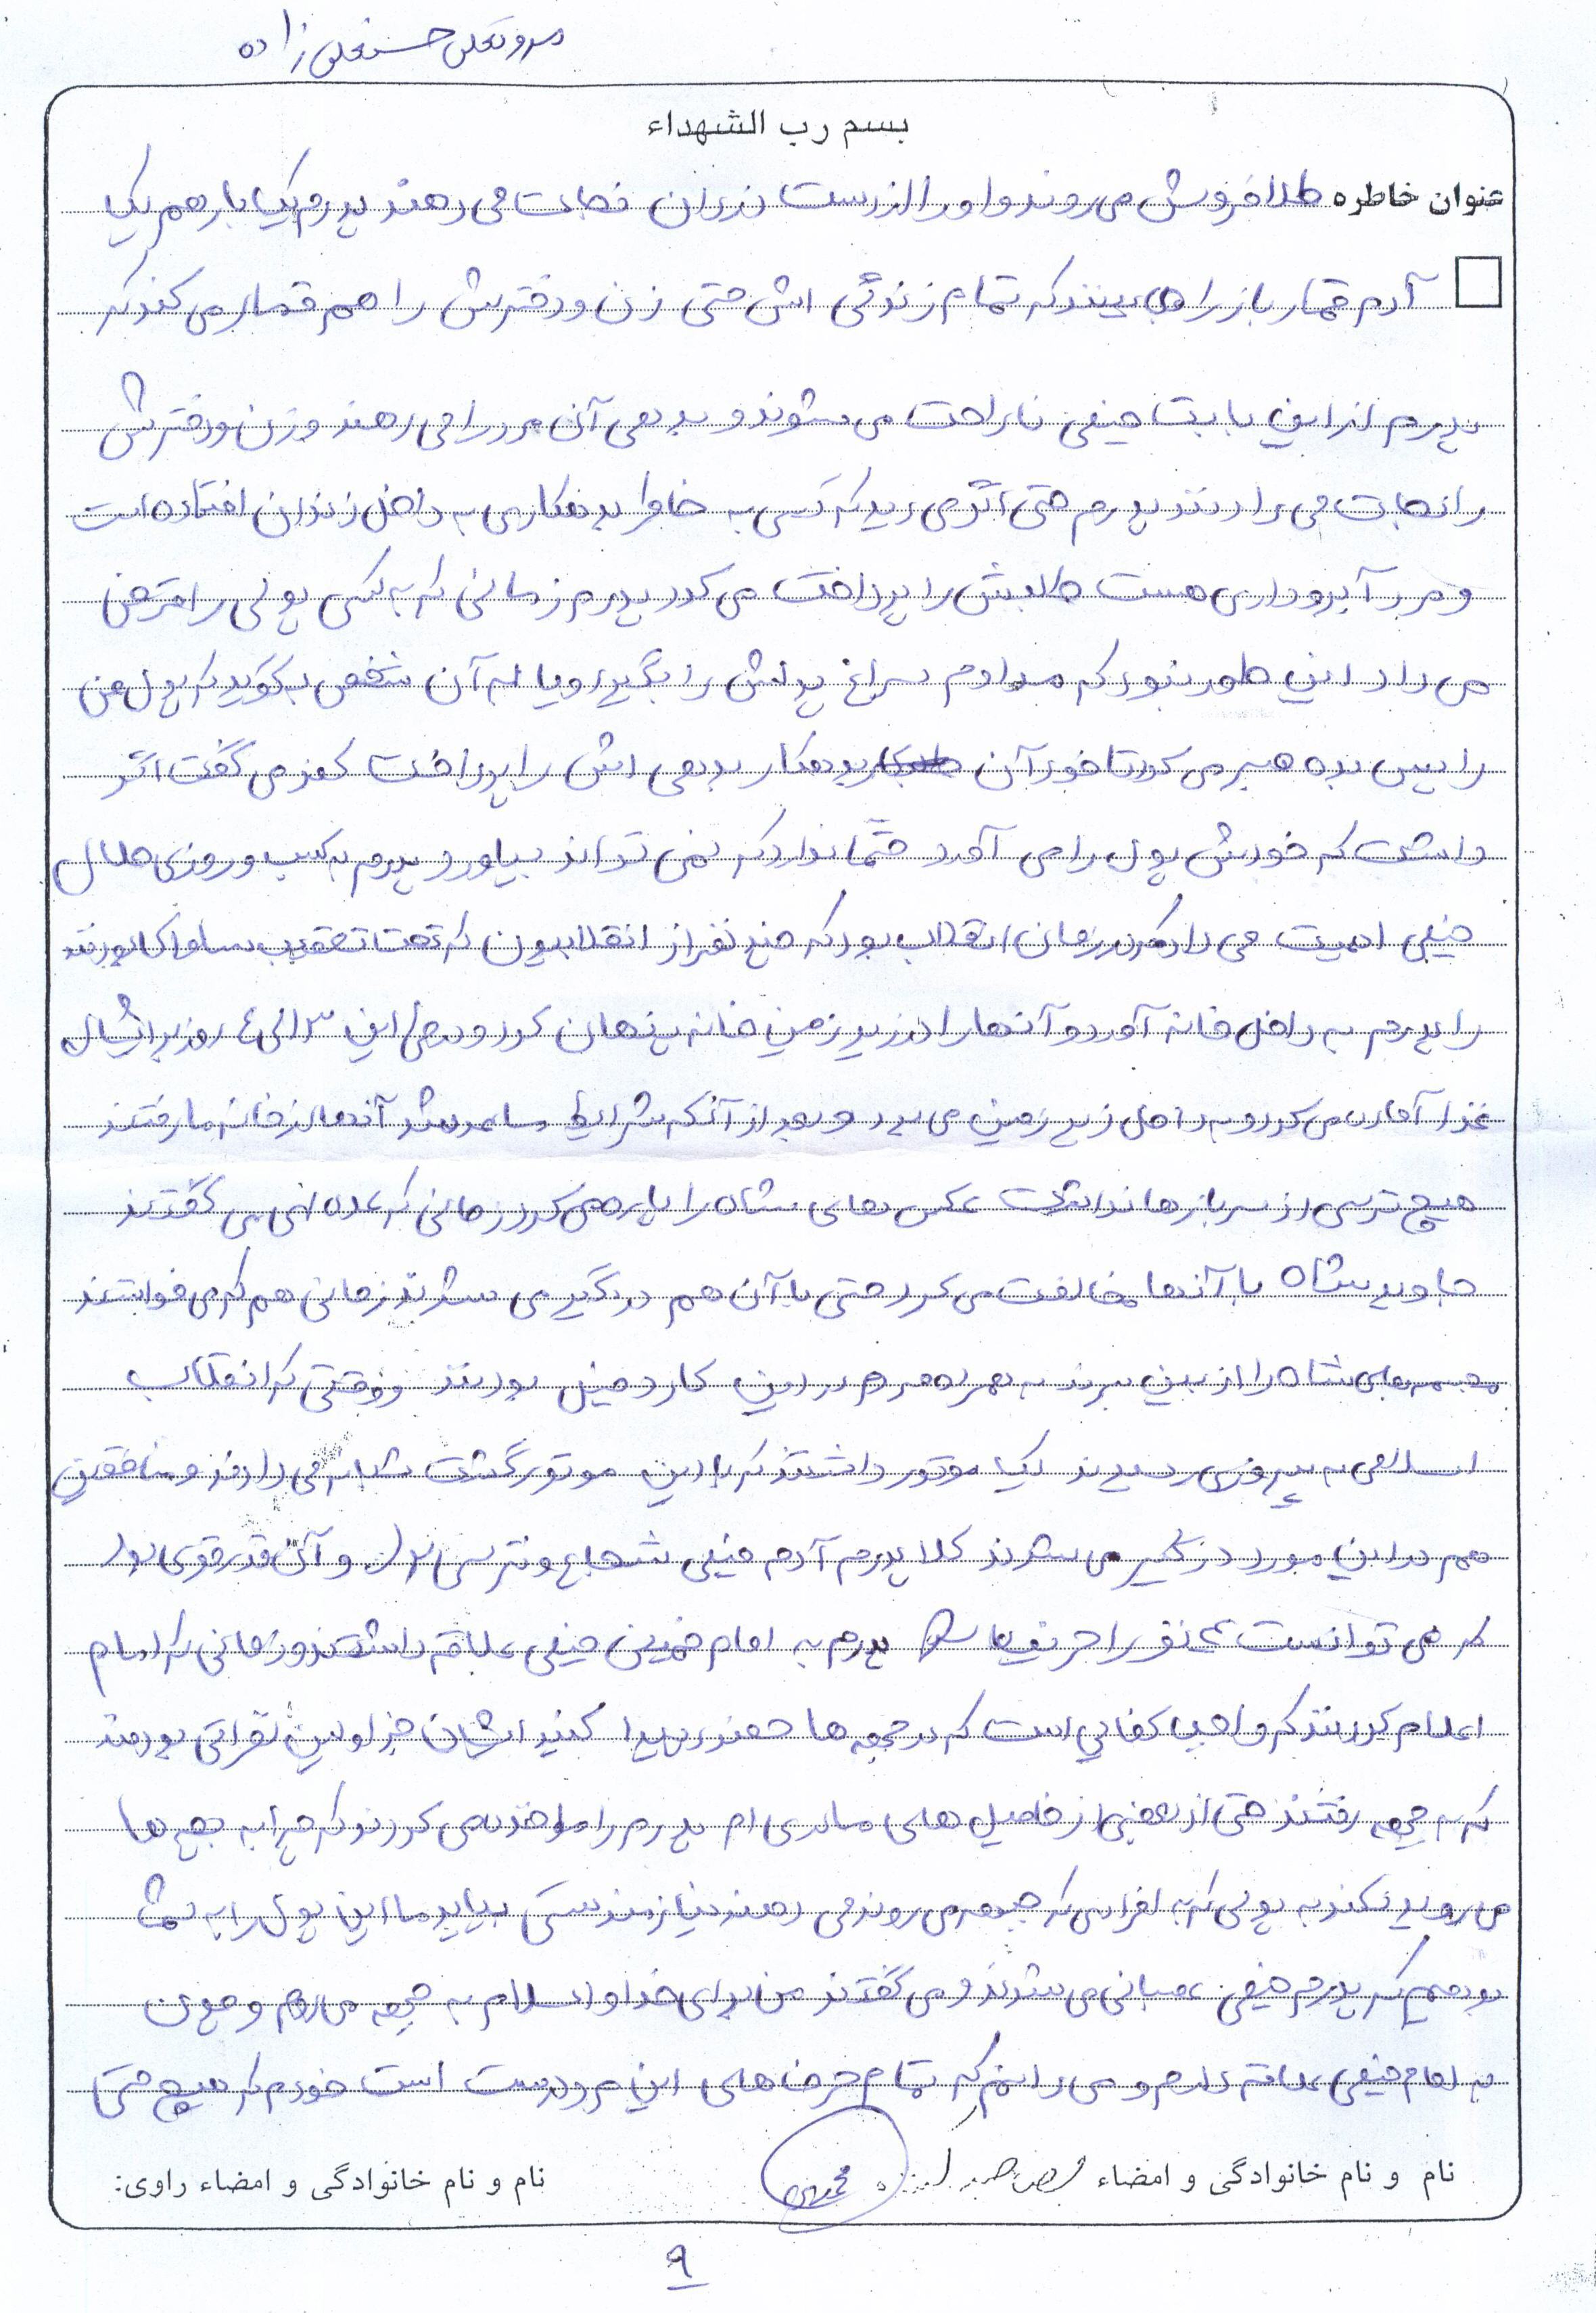 حسنعلی زاده
بسم رب الشهداء
عنوان خاطره طلا فروش می روند و او را از دست دزدان نجات می دهند پدرم یکبار هم یک
آدم قمار باز را می بینند که تمام زندگی اش حتی زن و دخترش را هم قمار می کند که
پدرم از این بابت خیلی ناراحت می شوند و بدهی آن مرد را می دهند و زن و دخترش
را نجات می دادند پدرم حتی اگر می دید که کسی به خاطر بدهکاری به داخل زندان افتاده است
و مرد آبرو داری هست طلبش را پرداخت می کرد پدرم زمانی که به کسی پولی را قرض
می داد این طور نبود که مداوم سراغ پولش را بگیرد و یا به آن شخص بگوید که پول من
را پس بده صبر می کرد تا خود آن بدهکار بدهی اش را پرداخت کند می گفت اگر
داشت که خودش پول را می آورد حتماً ندارد که نمی تواند بیاورد پدرم به کسب و روزی حلال
خیلی اهمیت می داد در زمان انقلاب بود که چند نفر از انقلابیون که تحت تعقیب ساواک بودند
را پدرم به داخل خانه آورد و آنها را در زیر زمین خانه پنهان کرد و در این ۳ الی ٤ روز برایشان
غذا آماده می کرد و به داخل زیر زمین می برد و بعد از آنکه شرایط مساعد شد آنها از خانه ما رفتند
هیچ ترسی از سربازها نداشت عکس های شاه را پاره می کرد زمانی که عده ای می گفتند
جاوید شاه با آنها مخالفت می کرد حتی با آن هم درگیر می شدند زمانی هم که می خواستند
مجسمه های شاه را از بین ببرند به همراه مردم در این کار دخیل بودند و وقتی که انقلاب
اسلامی به پیروزی رسیدند یک موتور داشتند که با این موتور گشت شبانه می دادند و منافقین
هم در این مورد درگیر می شدند کلا پدرم آدم خیلی شجاع و نترسی بود و آن قدر قوی بود
که می توانست نفر را حریف پدرم به امام خمینی خیلی علاقه داشتند و زمانی که امام
اعلام کردند که واجب کفایی است که در جبهه ها حضور پیدا کنید ایشان جز اولین نفراتی بودند
که به جبهه رفتند حتی از بعضی از فامیل های مادری ام پدرم را مواخذه می کردند که چرا به جبهه ها
می روید نکند به پولی که به افرادی که جبهه می روند می دهند نیازمند بیاید ما این پول را به شما
بدهیم که پدرم خیلی عصبانی می شدند و می گفتند من برای خدا و اسلام به جبهه می روم و من
به امام خیلی علاقه دارم و می دانم که تمام حرف های این مرد درست است خودم که هیچ حتی
نام و نام خانوادگی و امضاء
نام و نام خانوادگی و امضاء راوی:
۹